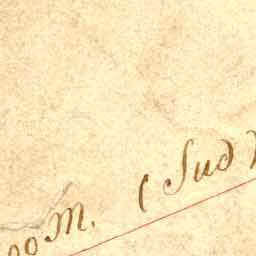 00 M. (Sud)